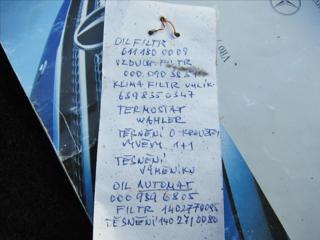 OIL FILTR
611 180 00 09
VZDUCH. FILTR
000 090 3851
KLIMA FILTR UHLÍK
639 835 0347
TERMOSTAT
WAHLER
TĚSNĚNÍ O-KROUŽKY
VÝVĚVY 1+1
TĚSNĚNÍ
VÝMĚNÍKU
OIL AUTOMAT
000 989 6805
FILTR 1402770095
TĚSNĚNÍ 140 271 0080